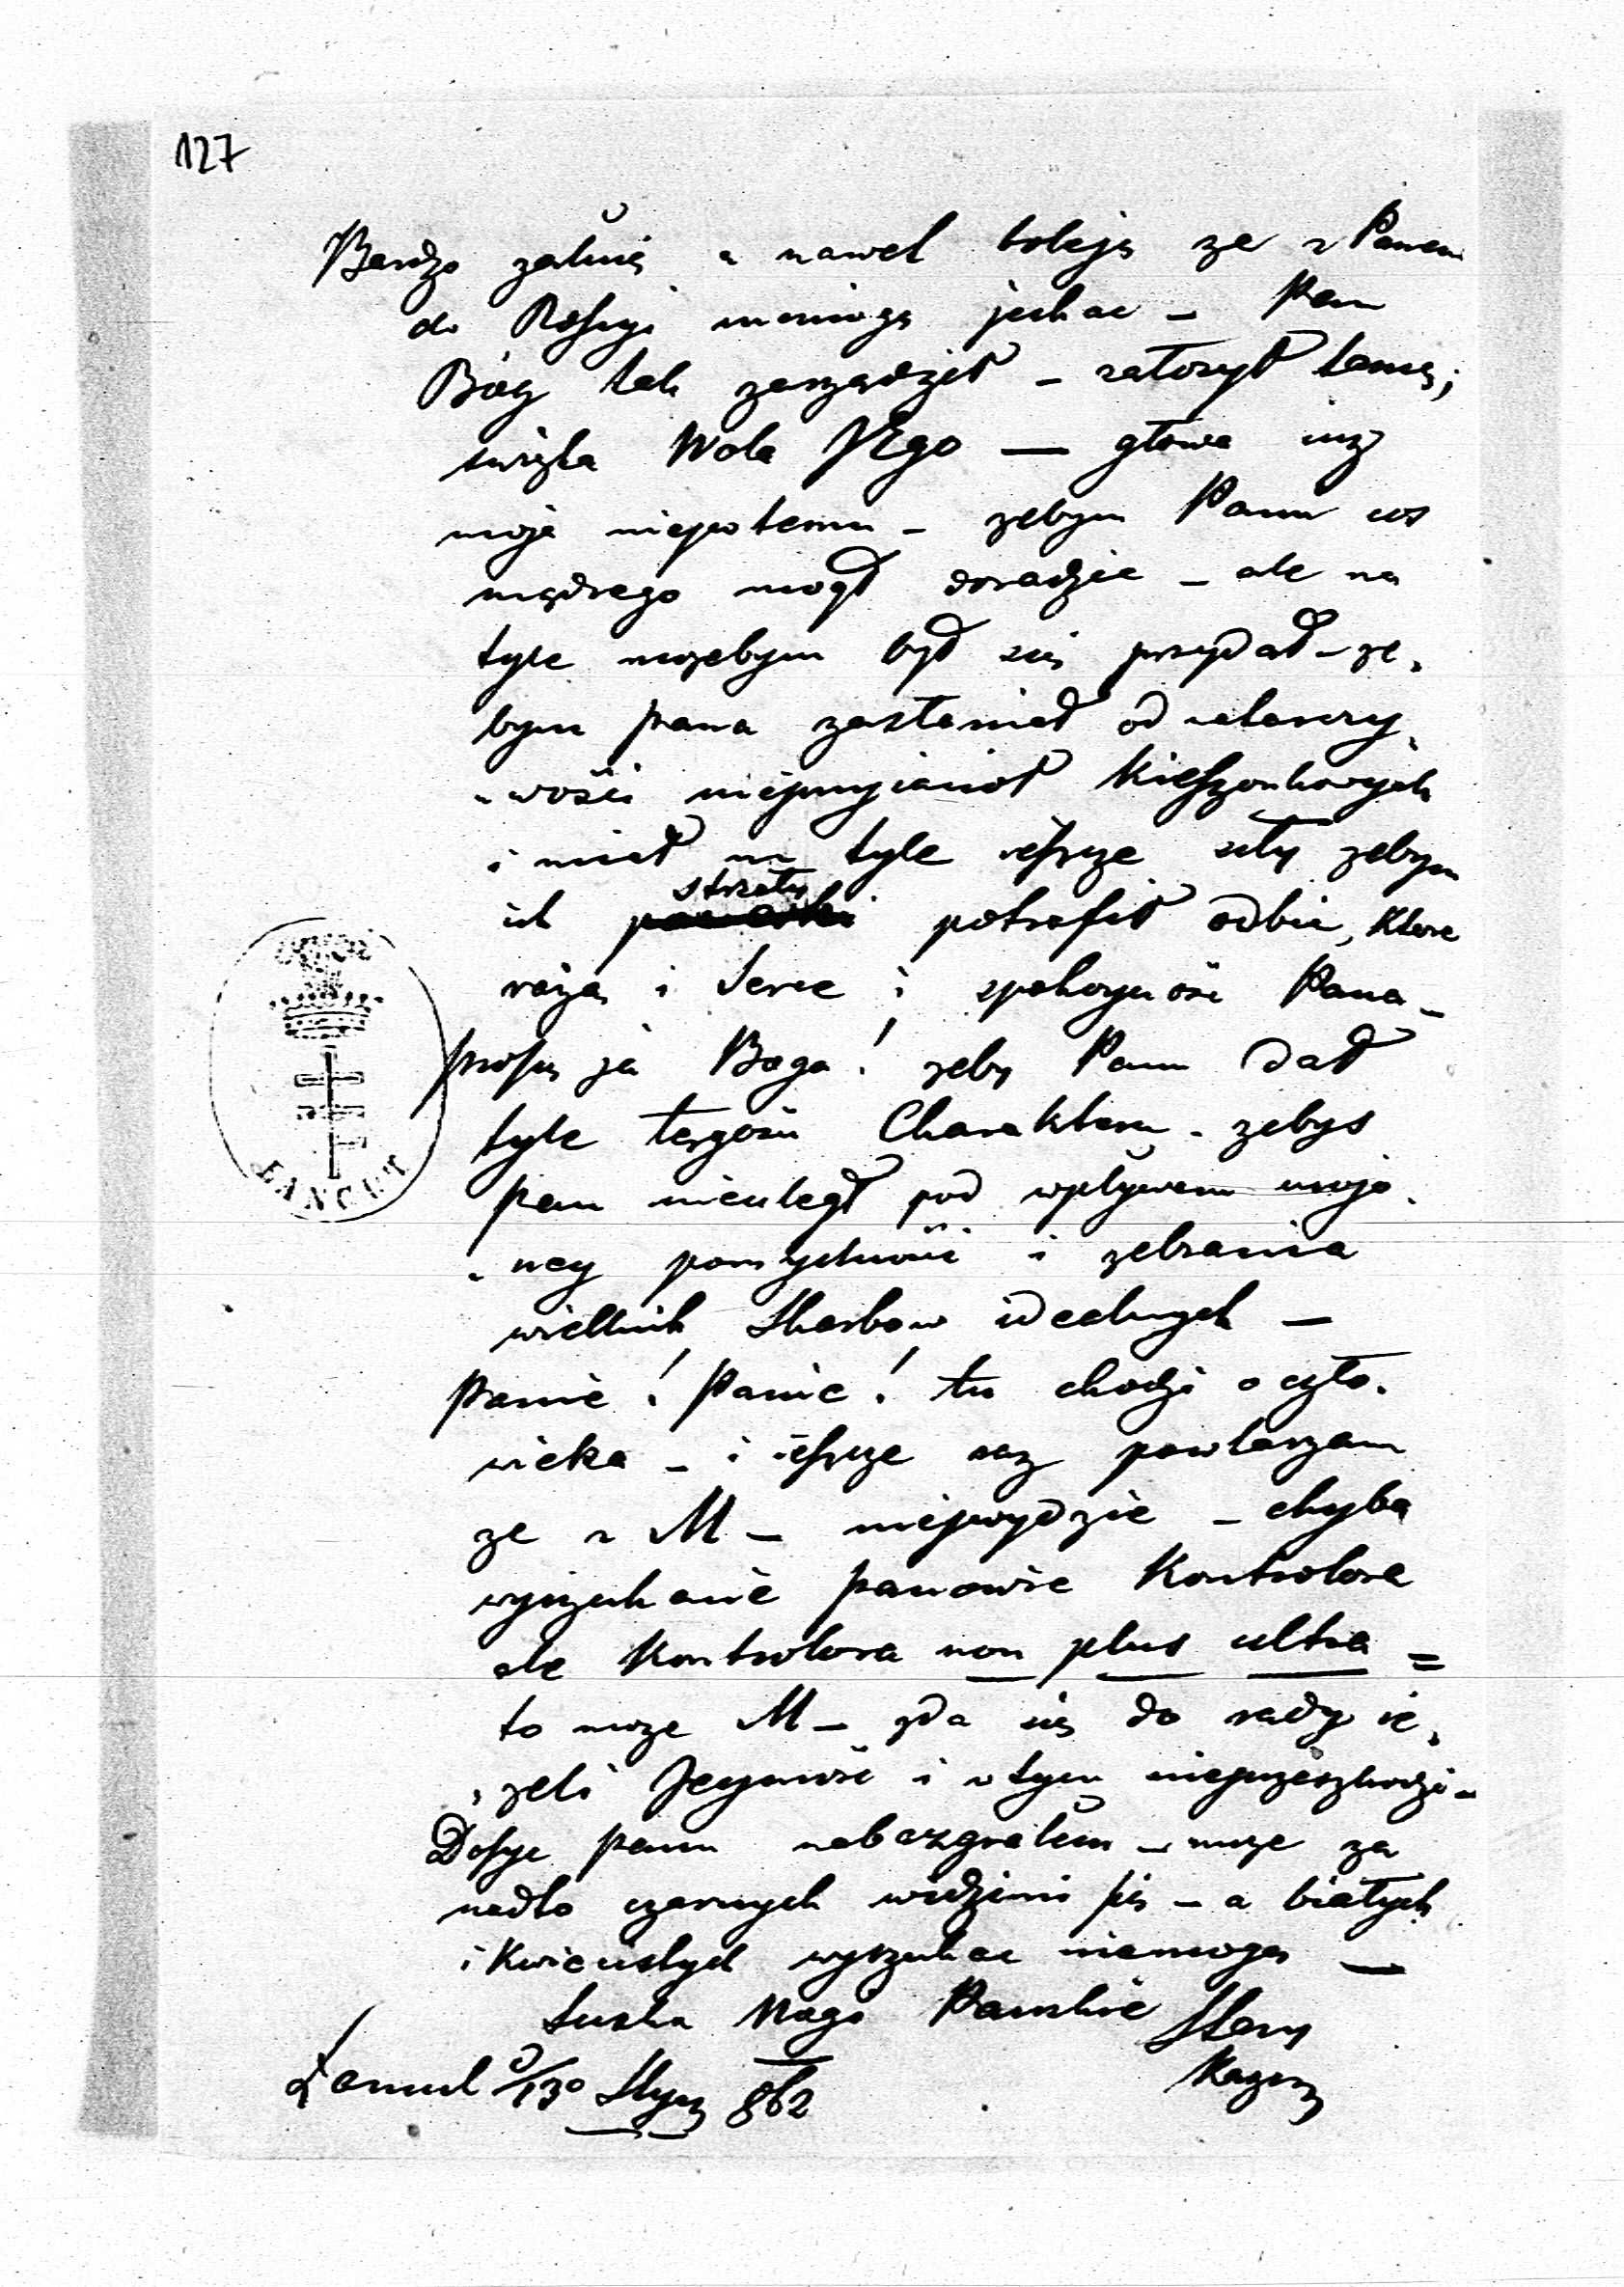 127
Bardzo załuię a nawet boleję ze z Panem
do Rossyi niemogę jechac – Pan
Bóg tak zarządził – założył tamę;
swięta Wola JEgo — głowa iuz
moja niepotemu – zebym Panu cos
mądrego mogł doradzic – ale na
tyle mozebym był się przydał – ze,
bym pana zasłaniał od natarczy,
„wości nieprzyiaciół Kieszonkowych
i miał na tyle ieszcze siły zebym
strzały
ich potrafił odbic, Ktore
rażą i Serce i spokoyność Pana –
proszę ja Boga! zeby Panu dał
tyle tęgości Charakteru – zebys
pan nieuległ pod wpływem moja.
„ney pomyslności i zebrania
wielkich Skarbow idealnych —
Panie! Panie! tu chodzi o czło.
wieka – i ieszcze raz powtarzam
ze z M – niepoydzie – chyba
wyszukanie panowie Kontrolora
ale Kontrolora non plus ultra =
to moze M – zda się do rady ie,
„zeli Jegomość i w tym nieprzeszkodzi –
Dosyc panu nabazgrałem – moze za
nadto czarnych widzeni się – a białych
i Kwiecistych wyszukac niemogę —
Sciska Nogi Panskie Stary
Kazmrz
Łancut d/13º Stycz 862
ŁAŃCUT